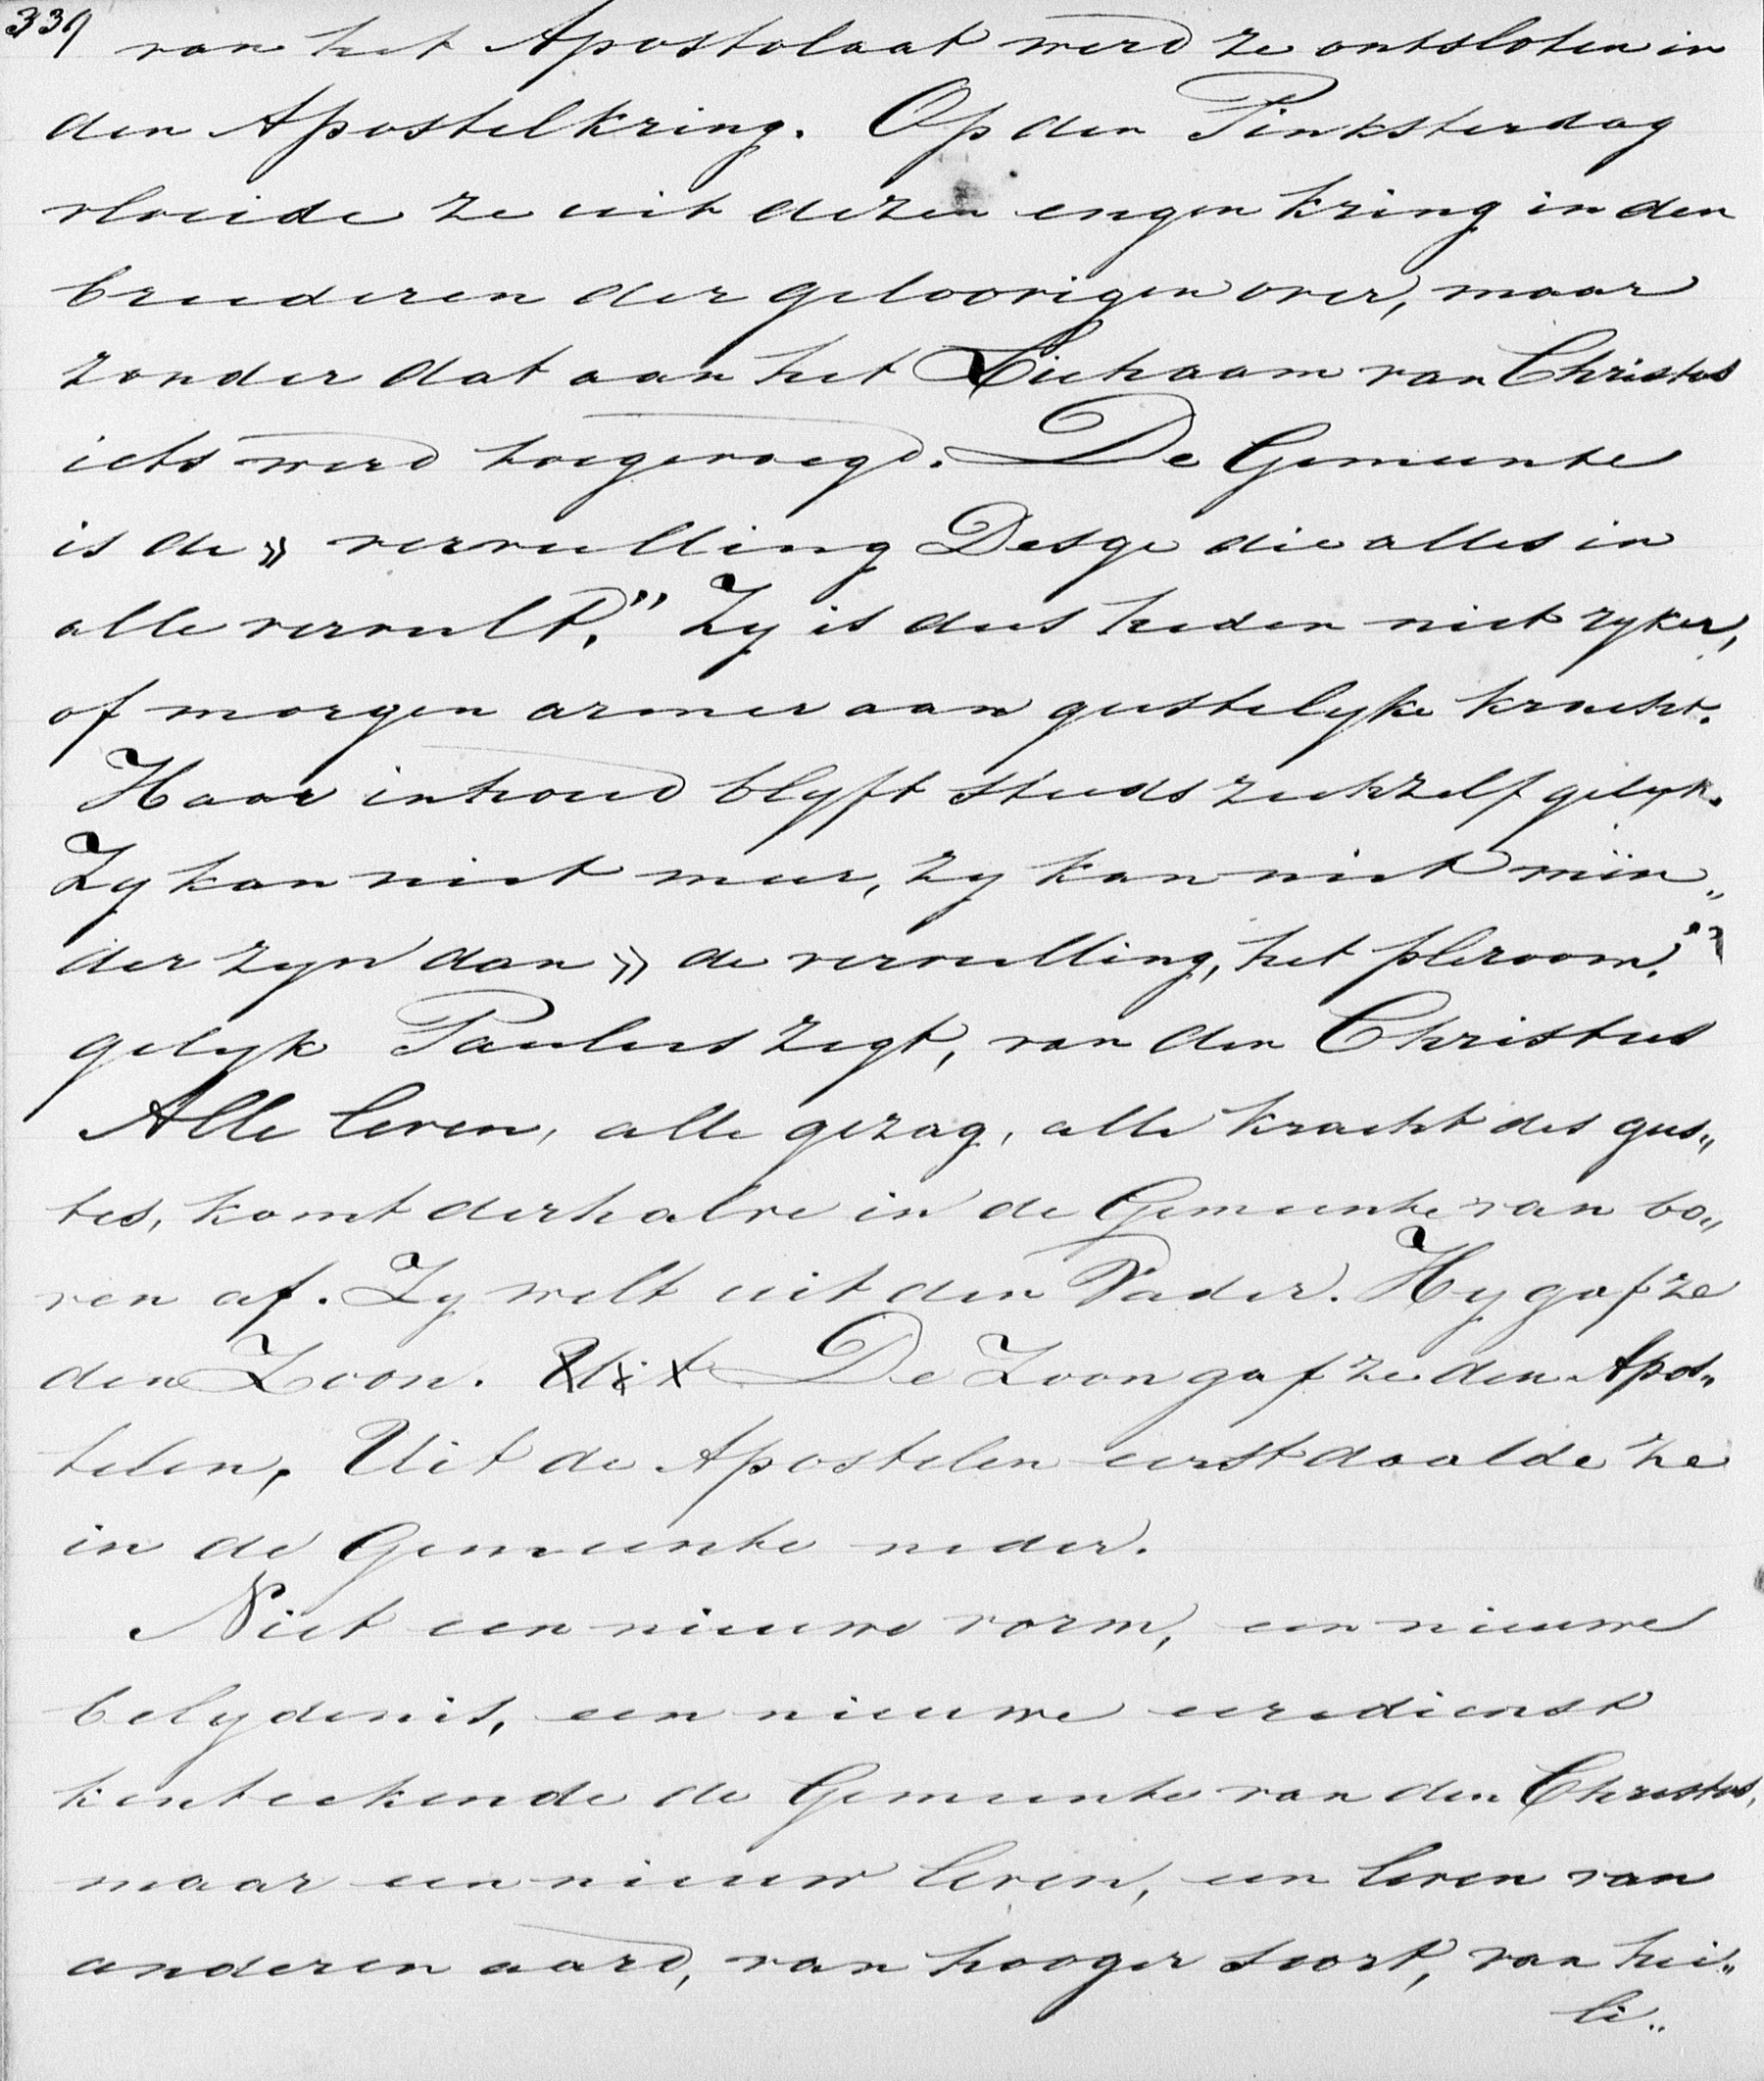 339
van het Apostolaat werd ze ontsloten in
den Apostelkring. Op den Pinksterdag
vloeide ze uit dezen engen kring in den
breederen der geloovigen over, maar
zonder dat aan het Lichaam van Christus
iets werd toegevoegd. De Gemeente
is de » vervulling Desge die alles in
alle vervult." Zy is dus heden niet ryker,
of morgen armer aan geestelyke kracht.
Haar inhoud blyft steeds zichzelf gelyk.
Zy kan niet meer, zy kan niet min„
der zyn dan » de vervulling, het pleroom."
gelyk Paulus zegt, van den Christus
Alle leven, alle gezag, alle kracht des gees„
tes, komt derhalve in de Gemeente van bo„
ven af. Zy welt uit den Vader. Hy gaf ze
den Zoon. Uit De Zoon gaf ze den Apos„
telen. Uit de Apostelen eerst daalde ze
in de Gemeente neder.
Niet een nieuwe vorm, een nieuwe
belydenis, een nieuwe eeredienst
kenteekende de Gemeente van den Christus,
maar een nieuw leven, een leven van
anderen aard, van hooger soort, van hei„
li„